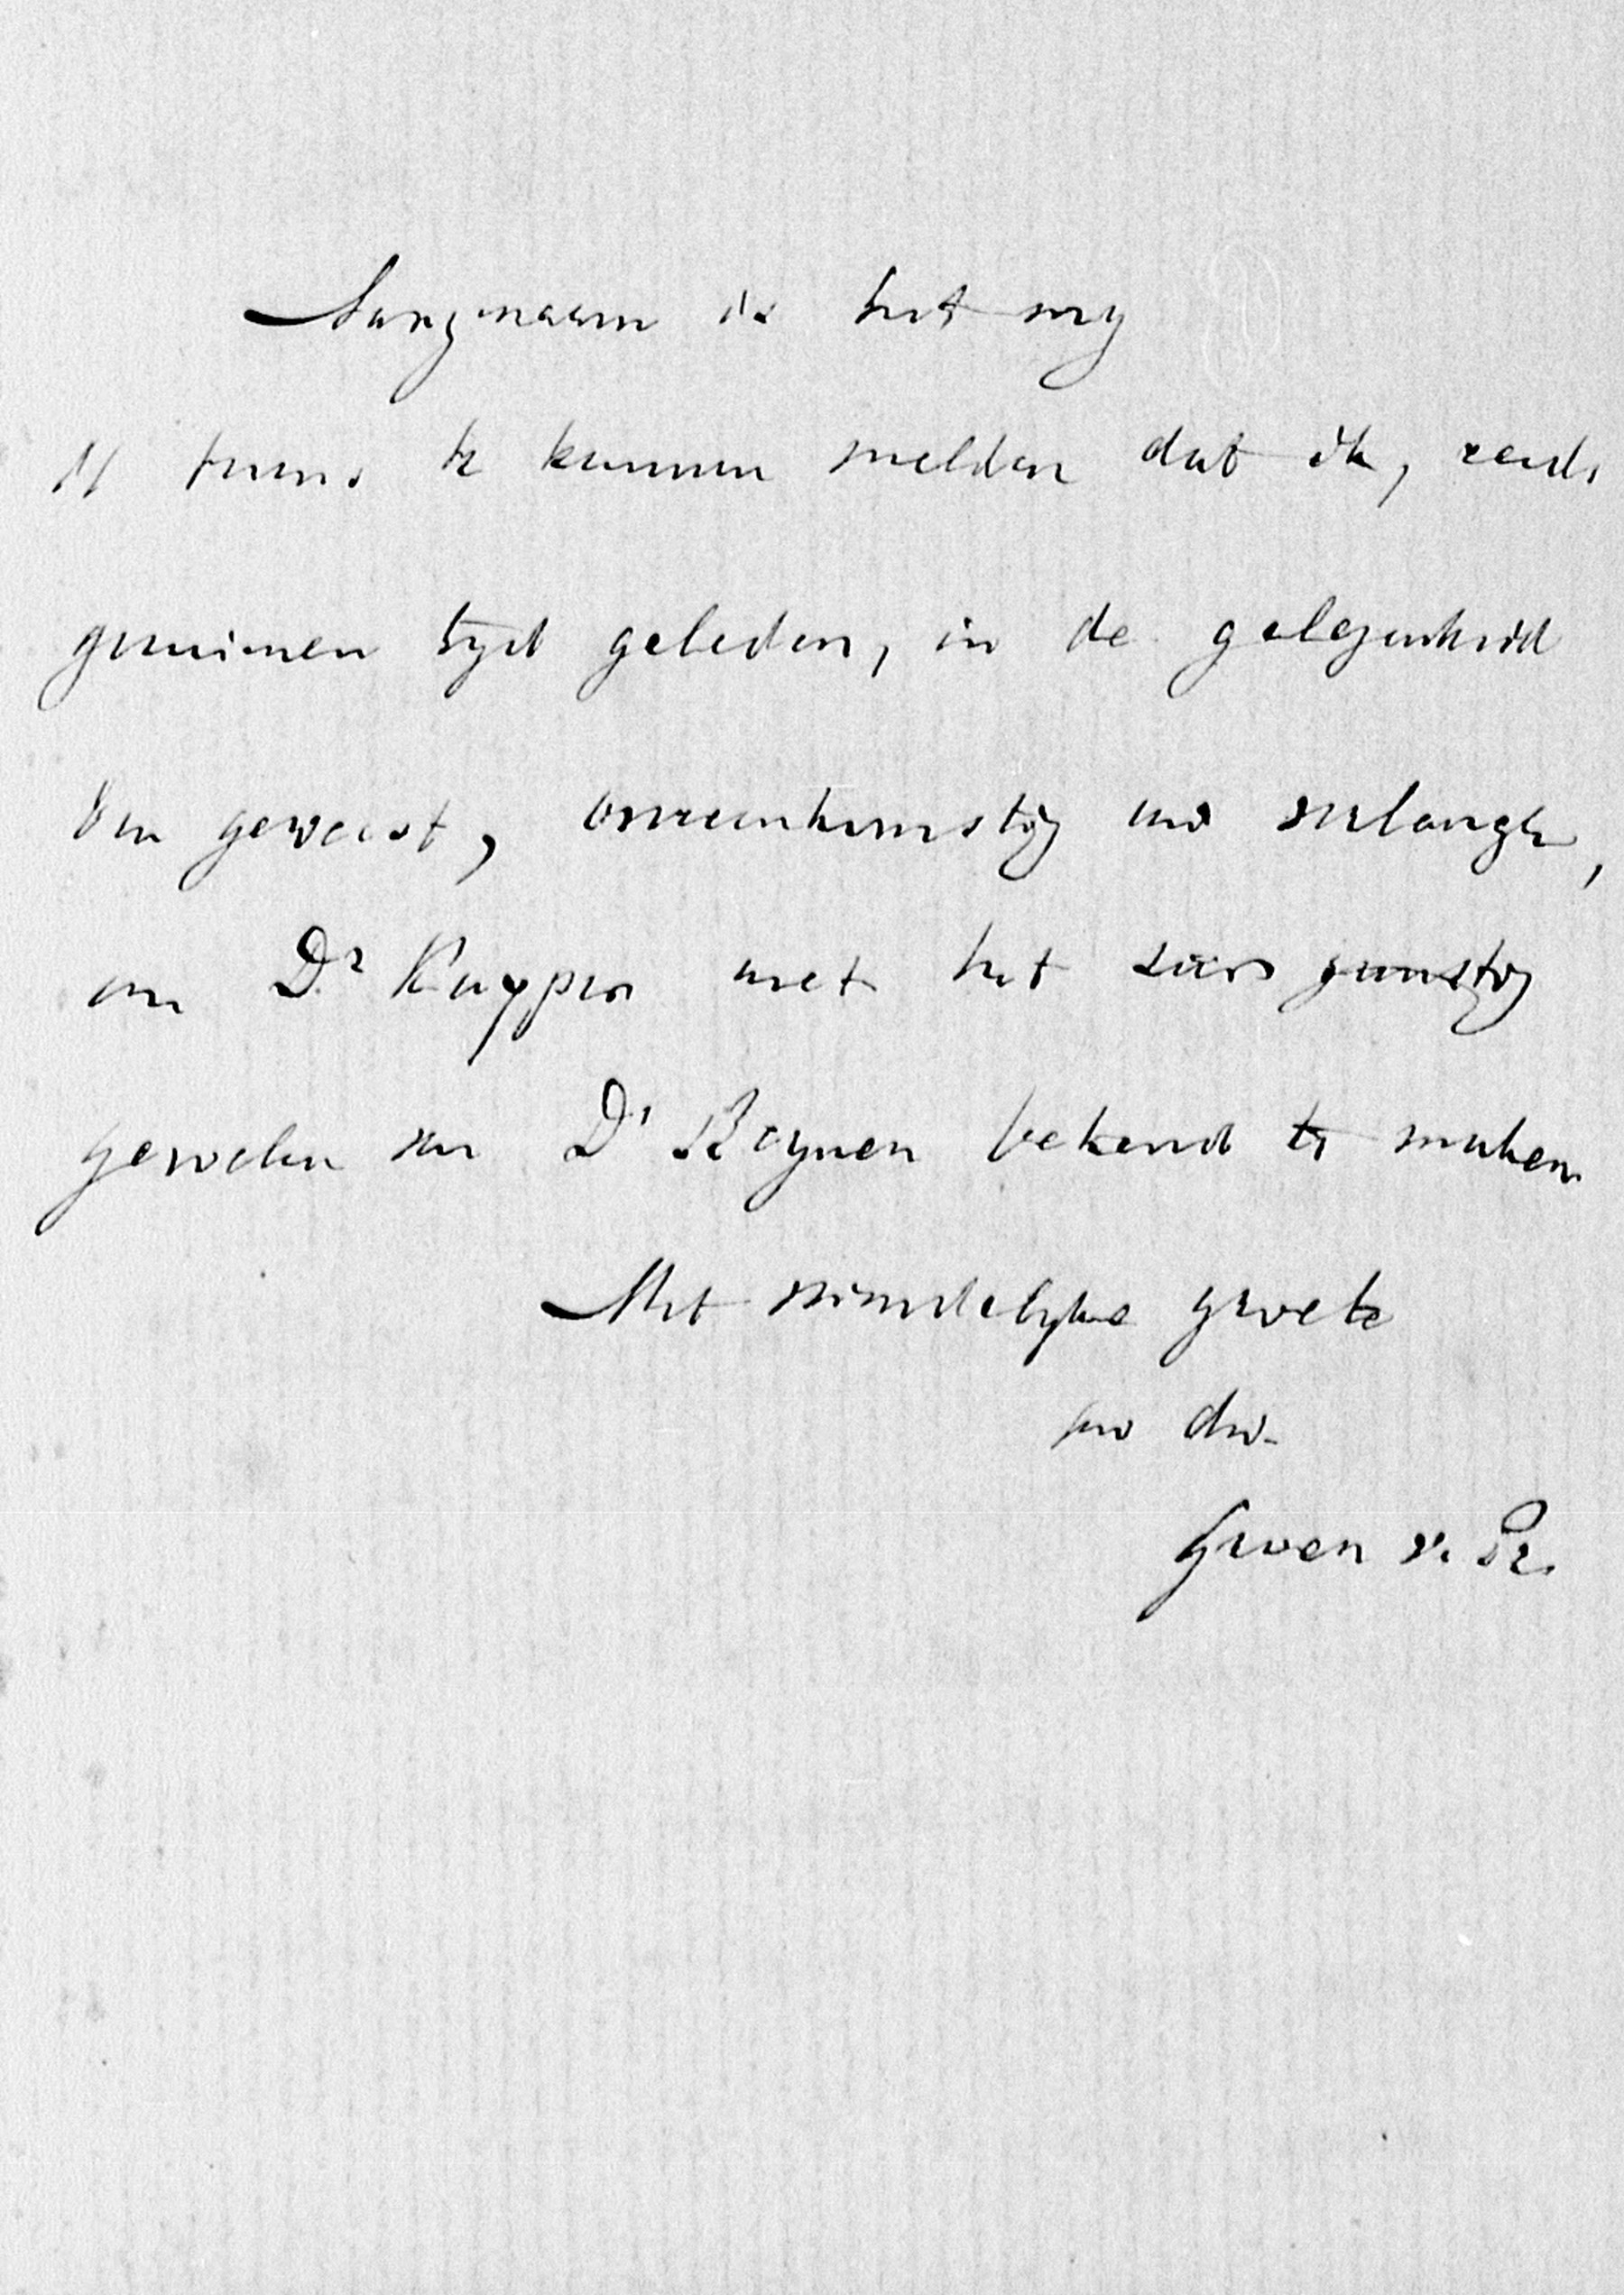 Aangenaam is het my
U tevens te kunnen melden dat ik, reeds
geruimen tyd geleden, in de gelegenheid
ben geweest, overeenkomstig uw verlangen,
om Dr Kuyper met het zeer gunstig
gevoelen van Dr Reynen bekend te maken
Met vriendelyke groete
uw dw.
Groen v. Pr.